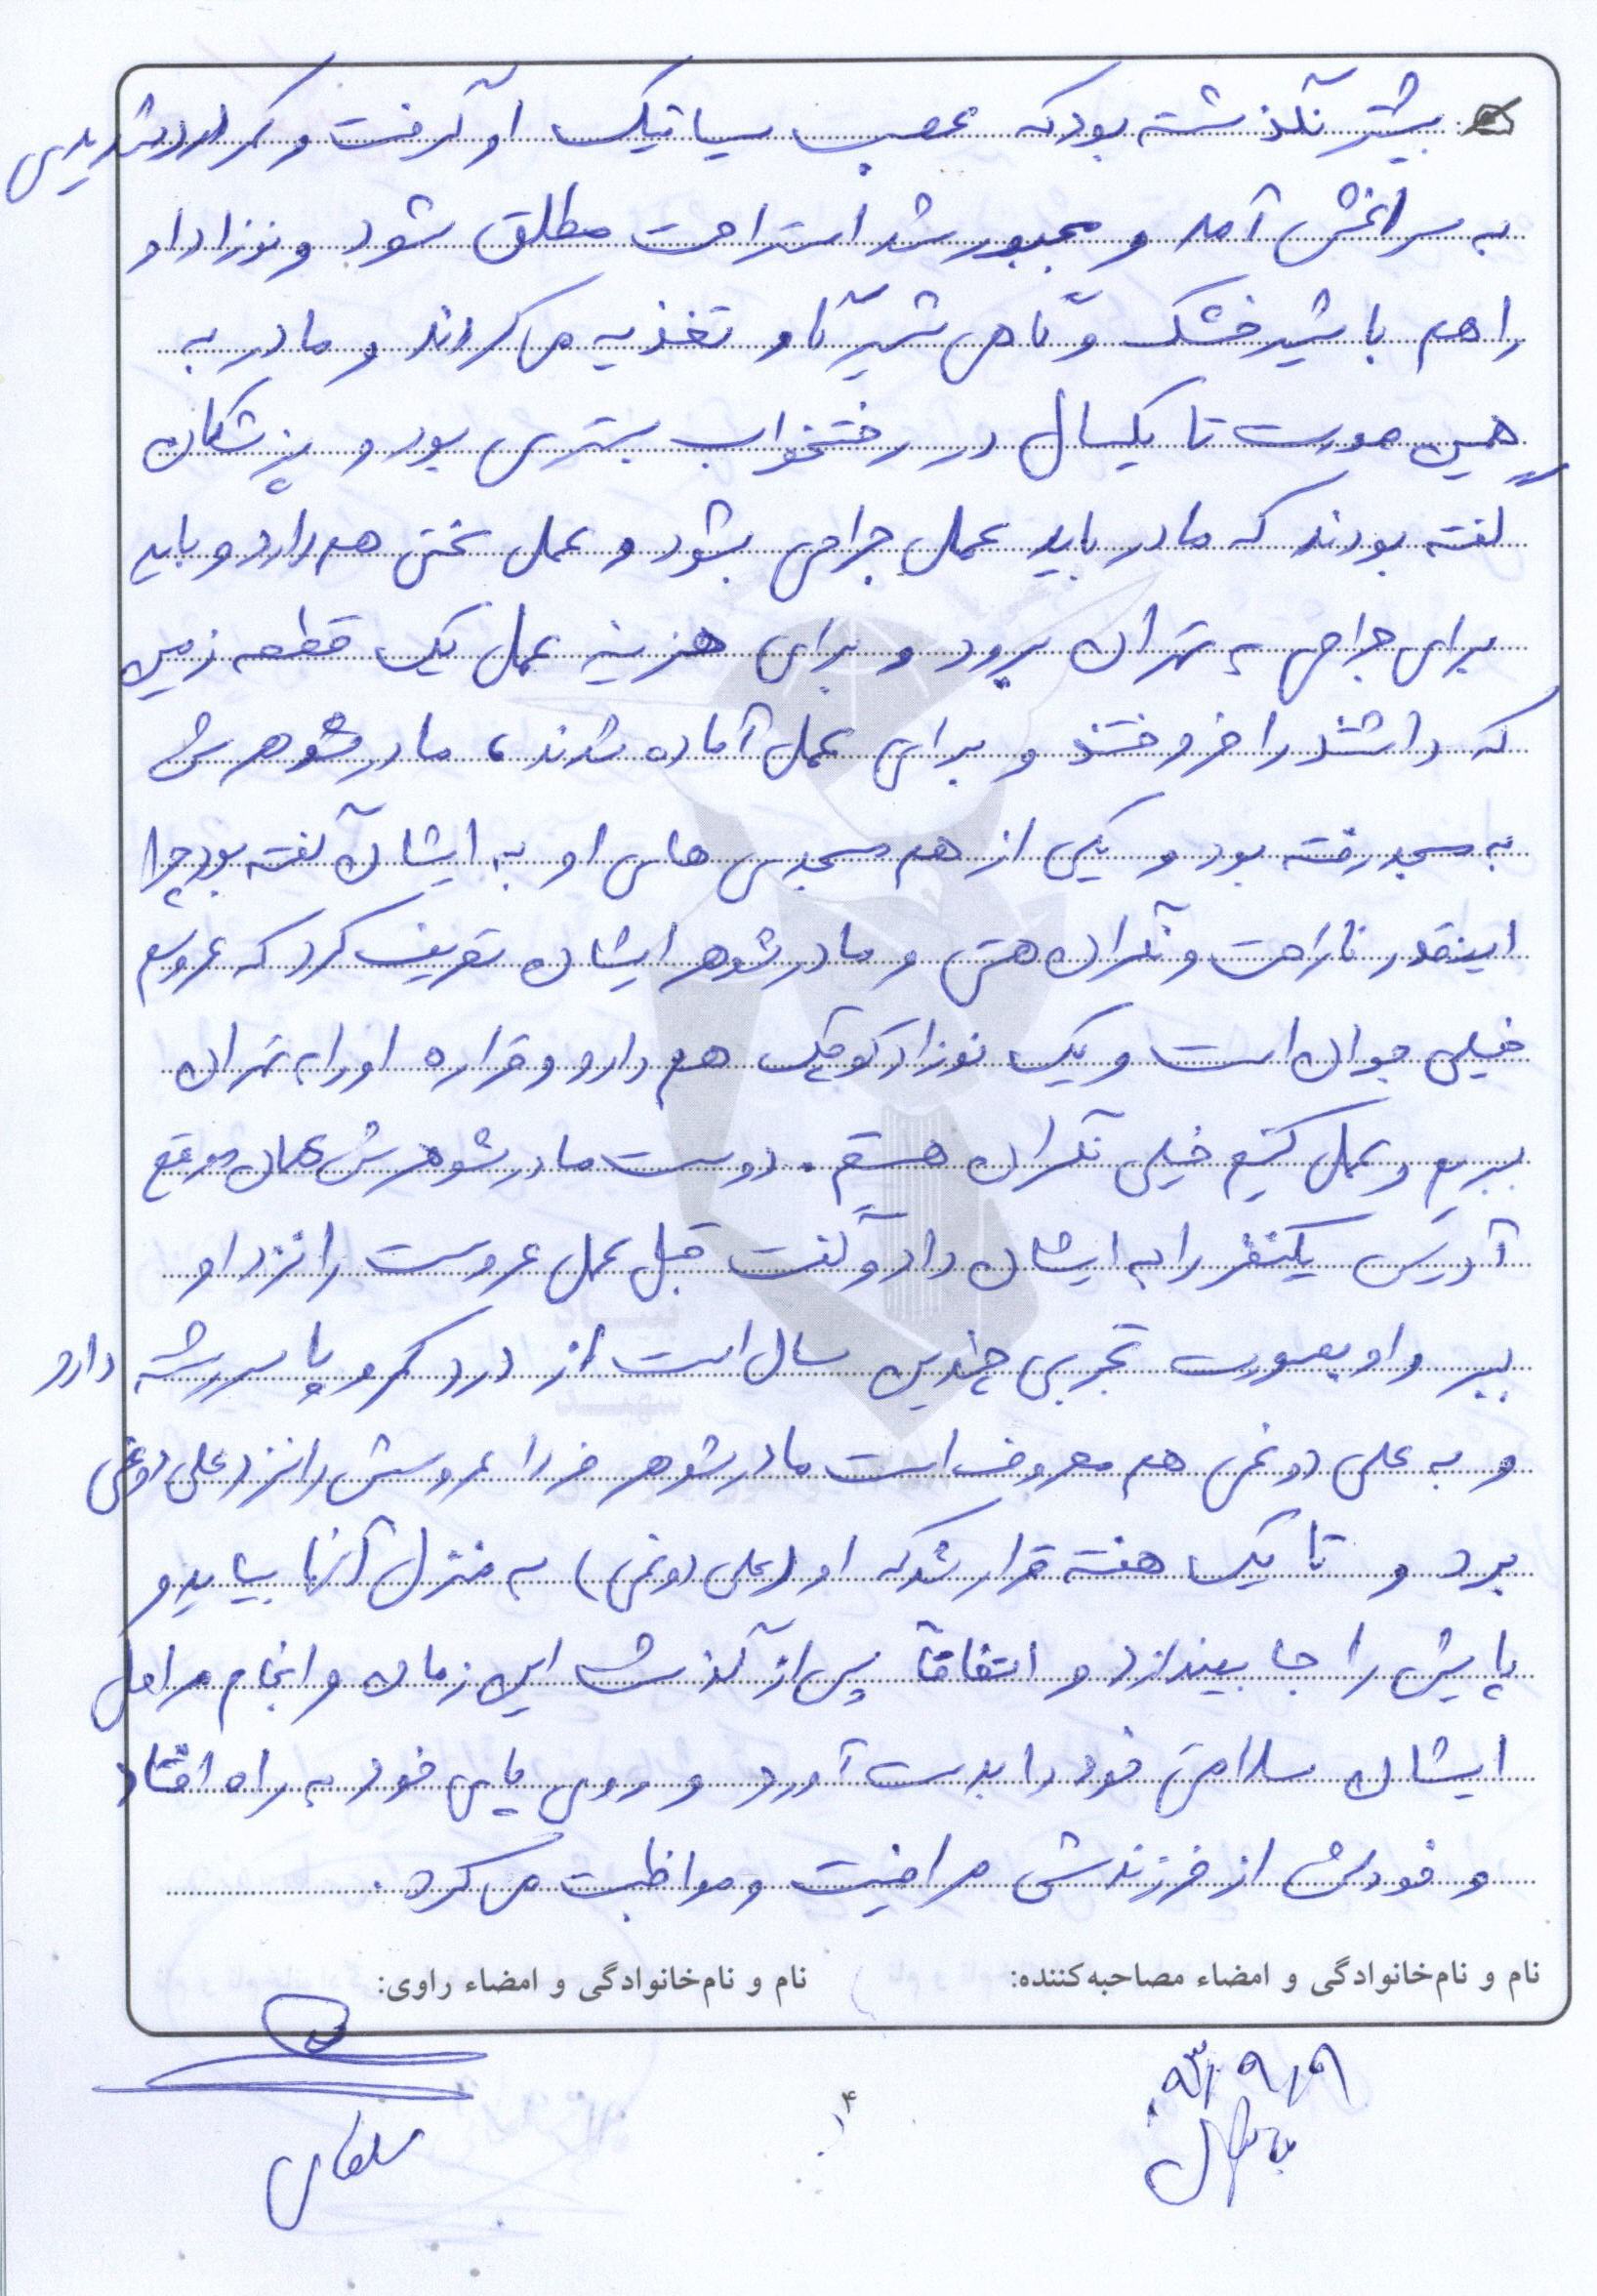 بیشتر نگذشته بود که عصب سیاتیک او گرفت و کمر درد شدیدی
به سراغش آمد و مجبور شد استراحت مطلق شود و نوزاد او
را هم با شیر خشک و گاهی شیر گاو تغذیه می کردند و مادر به
همین صورت تا یکسال در رختخواب بستری بود و پزشکان
گفته بودند که مادر باید عمل جراحی بشود و عمل سختی هم دارد و باید
برای جراحی به تهران برود و برای هزینه عمل یک قطعه زمین
که داشتند را فروختند و برای عمل آماده شدند، مادر شوهرش
به مسجد رفته بود و یکی از هم مسجدی های او به ایشان گفته بود چرا
اینقدر ناراحت و نگران هستی و مادر شوهر ایشان تعریف کرد که عروسم
خیلی جوان است و یک نوزاد کوچک هم دارد و قراره او را به تهران
ببریم و عمل کنیم خیلی نگران هستم. دوست مادر شوهرش همان موقع
آدرس یکنفر را به ایشان داد و گفت قبل عمل عروست را نزد او
ببر و او بصورت تجربی چندین سال است از درد کمر و پا سررشته دارد
و به علی دوغی هم معروف است مادر شوهر فردا عروسش را نزد علی دوغی
برد و تا یک هفته قرار شد که او (علی دوغی) به منزل آنها بیاید و
پایش را جا بیندازد و اتفاقاً پس از گذشت این زمان و انجام مراحل
ایشان سلامتی خود را بدست آورد و روی پای خود به راه افتاد
و خودش از فرزندش مراقبت و مواظبت می کرد.
نام و نام‌خانوادگی و امضاء مصاحبه‌کننده: نام و نام‌خانوادگی و امضاء راوی:
۹۳/۹/۹
۱۴